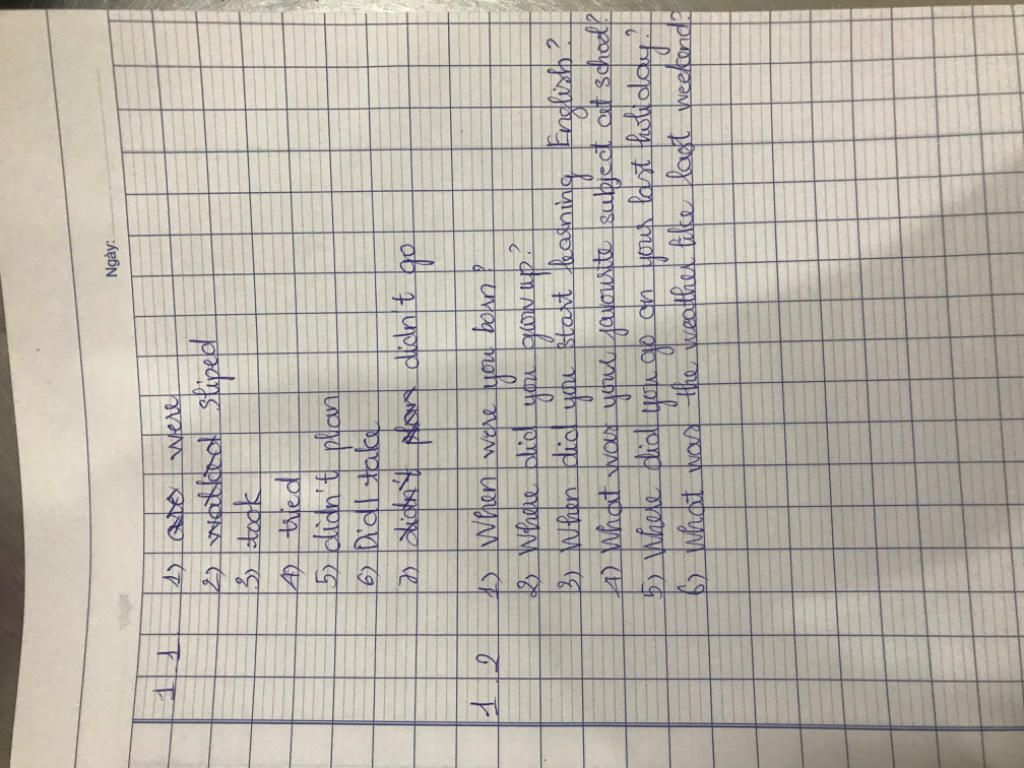 Ngày:
1.1 1) were
2) stiped
3) took
4) tried
5) didn't plan
6) Did take
7) didn't go
1.2 1) When were you born?
2) Where did you grow up?
3) When did you start learning English?
4) What was your favourite subject at school?
5) Where did you go on your last holiday?
6) What was the weather like last weekend?